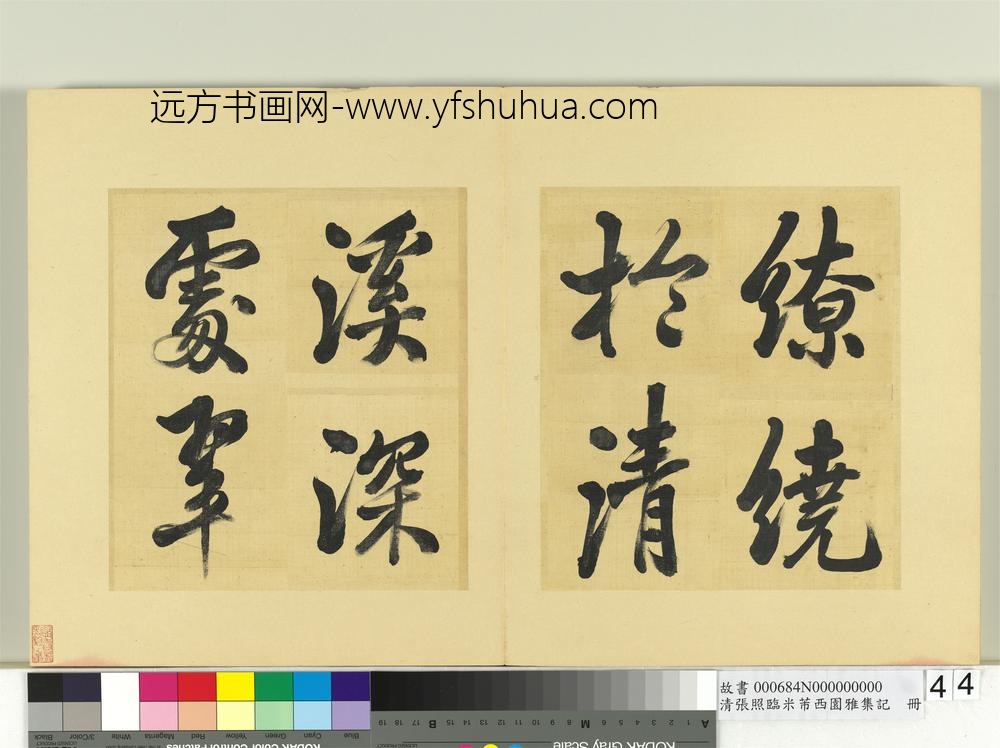 远方书画网-www.yfshuhua.com
繚繞
於清
溪深
處翠
故書 000684N000000000
清張照臨米芾西園雅集記 冊
44
Black
3/Color
White
Magenta
Red
Yellow
Green
Cyan
Blue
KODAK Color Control Patches
KODAK Gray Scale
A 1 2 3 4 5 6 M 8 9 10 11 12 13 14 15 B 17 18 19